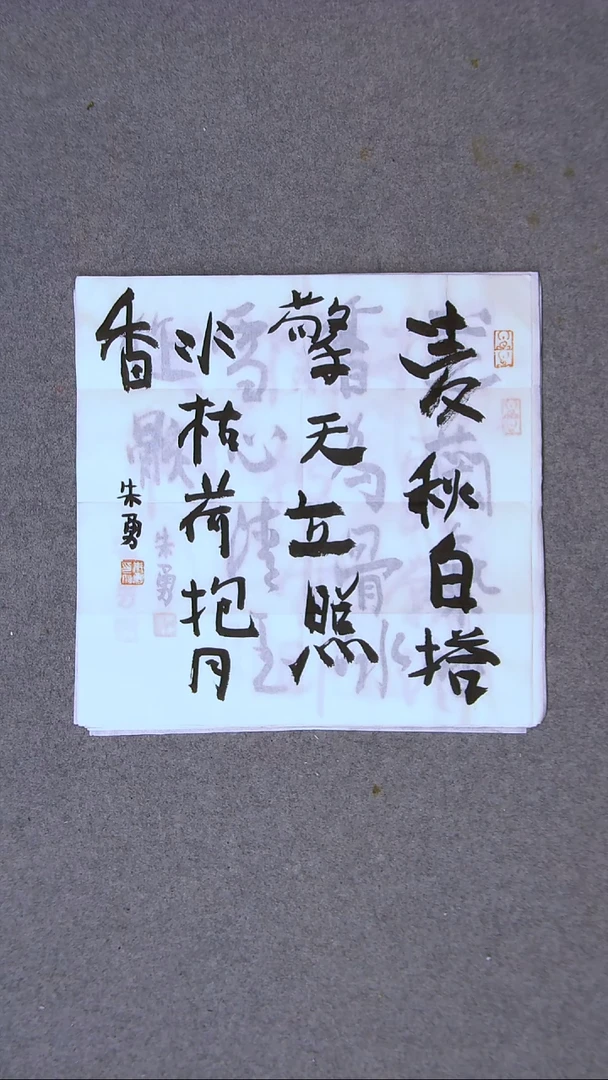 麦秋白塔
擎天立照
水枯荷抱月
香
朱勇